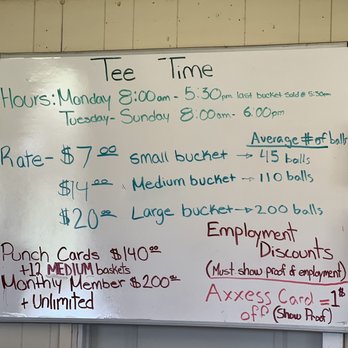 Tee Time
Hours: Monday 8:00am - 5:30pm last bucket sold @ 5:30pm
Tuesday- Sunday 8:00am- 6:00pm
Average # of balls
Rate- $7.00 small bucket → 45 balls
$14.00 Medium bucket → 110 balls
$20.00 Large bucket → 200 balls
Punch Cards $140.00
+12 MEDIUM baskets
Monthly Member $200.00
+ Unlimited
Employment
Discounts
(Must show proof of employment)
Axxess Card = 1$
off (Show Proof)